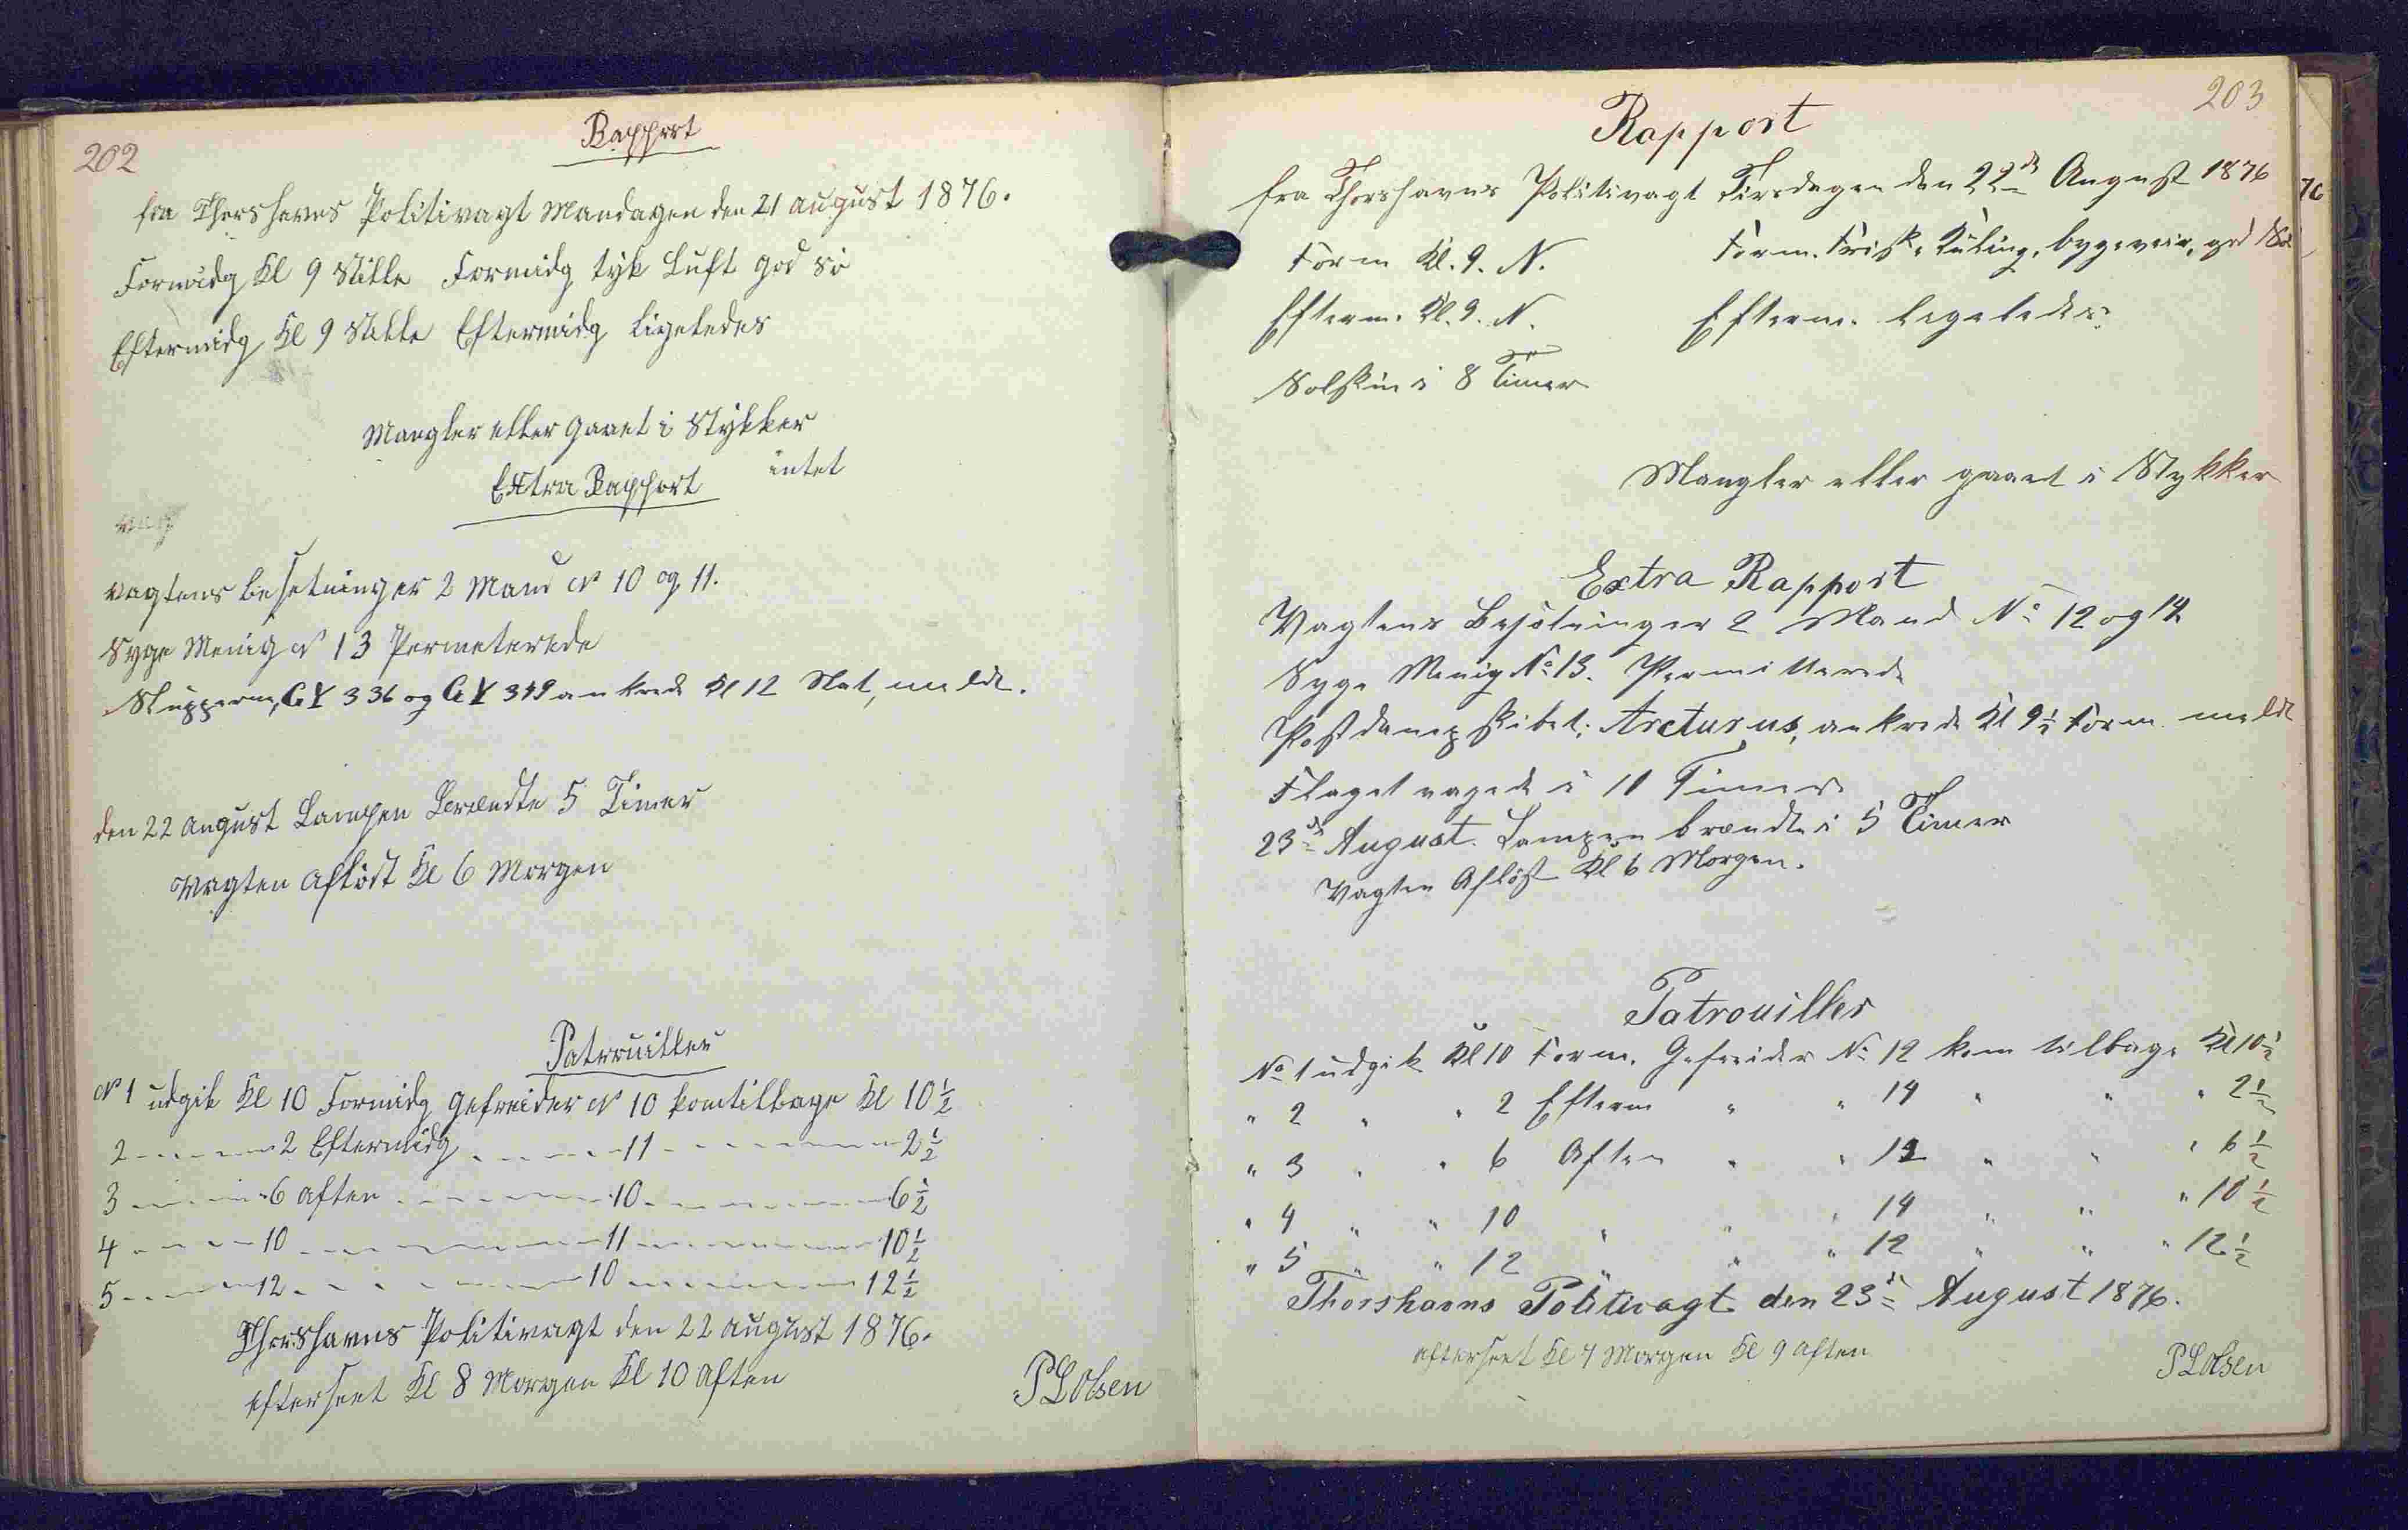 202
Rapport
fra Thorshavns Politivagt Mandagen den 21 august 1876.
Formidg Kl 9 Stille Formidg tyk Luft god Sö
Eftermidg Kl 9 Stille Eftermidg ligeledes
Mangler eller gaaet i Stykker
intet
Extra Rapport
vag
vagtens besetninger 2 Mand N 10 og 11.
Syge Menig N 13 Permeterede
Slupperne, GY 336 og GY 349 ankrede Kl 12 Nat, meldt.
den 22 august Lampen Brændte 5 Timer
Vagten aflöst Kl 6 Morgen
Patrouiller
N 1 udgik Kl 10 Formidg gefreider N 10 kom tilbage Kl 10 1/2
2 - - - - 2 Eftermidg - - - - 11 - - - - 2 1/2
3 - - - - 6 aften - - - - 10 - - - - 6 1/2
4 - - - - 10 - - - - 11 - - - - 10 1/2
5 - - - - 12 - - - - 10 - - - - 12 1/2
Thorshavns Politivagt den 22 august 1876.
efterseet Kl 8 Morgen Kl 10 aften
PLOlsen
203
Rapport
fra Thorshavns Politivagt Tirsdagen den 22de August 1876
Form Kl. 9. N. Form. Frisk. Kuling, bygeveir, god Sö
Efterm. Kl. 9. N. Efterm. legeledes.
Solskin i 8 Timer
Mangler eller gaaet i Stykker
Extra Rapport
Vagtens Besötninger 2 Mand No 12 og 14
Syge Menig No 13. Permitterede
Postdampskibet: Arcturus, ankrede Kl 9 1/2 Form. meldt
Flaget vagede i 11 Timer
23de August. Lampen brændte i 5 Timer
Vagten Aflöst Kl 6 Morgen.
Patrouiller
No 1 udgik Kl 10 Form. Gefreider No 12 kom tilbage Kl 10 1/2
" 2 " " 2 Efterm " " 14 " " " 2 1/2
" 3 " " 6 Aften " " 12 " " " 6 1/2
" 4 " " 10 " " " 14 " " " 10 1/2
" 5 " " 12 " " " 12 " " " 12 1/2
Thorshavns Politivagt den 23de August 1876.
efterseet Kl 7 Morgen Kl 9 aften
PLOlsen
76